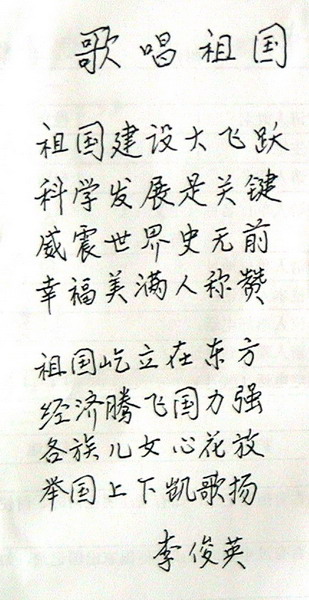 歌唱祖国
祖国建设大飞跃
科学发展是关键
威震世界史无前
幸福美满人称赞
祖国屹立在东方
经济腾飞国力强
各族儿女心花放
举国上下凯歌扬
李俊英